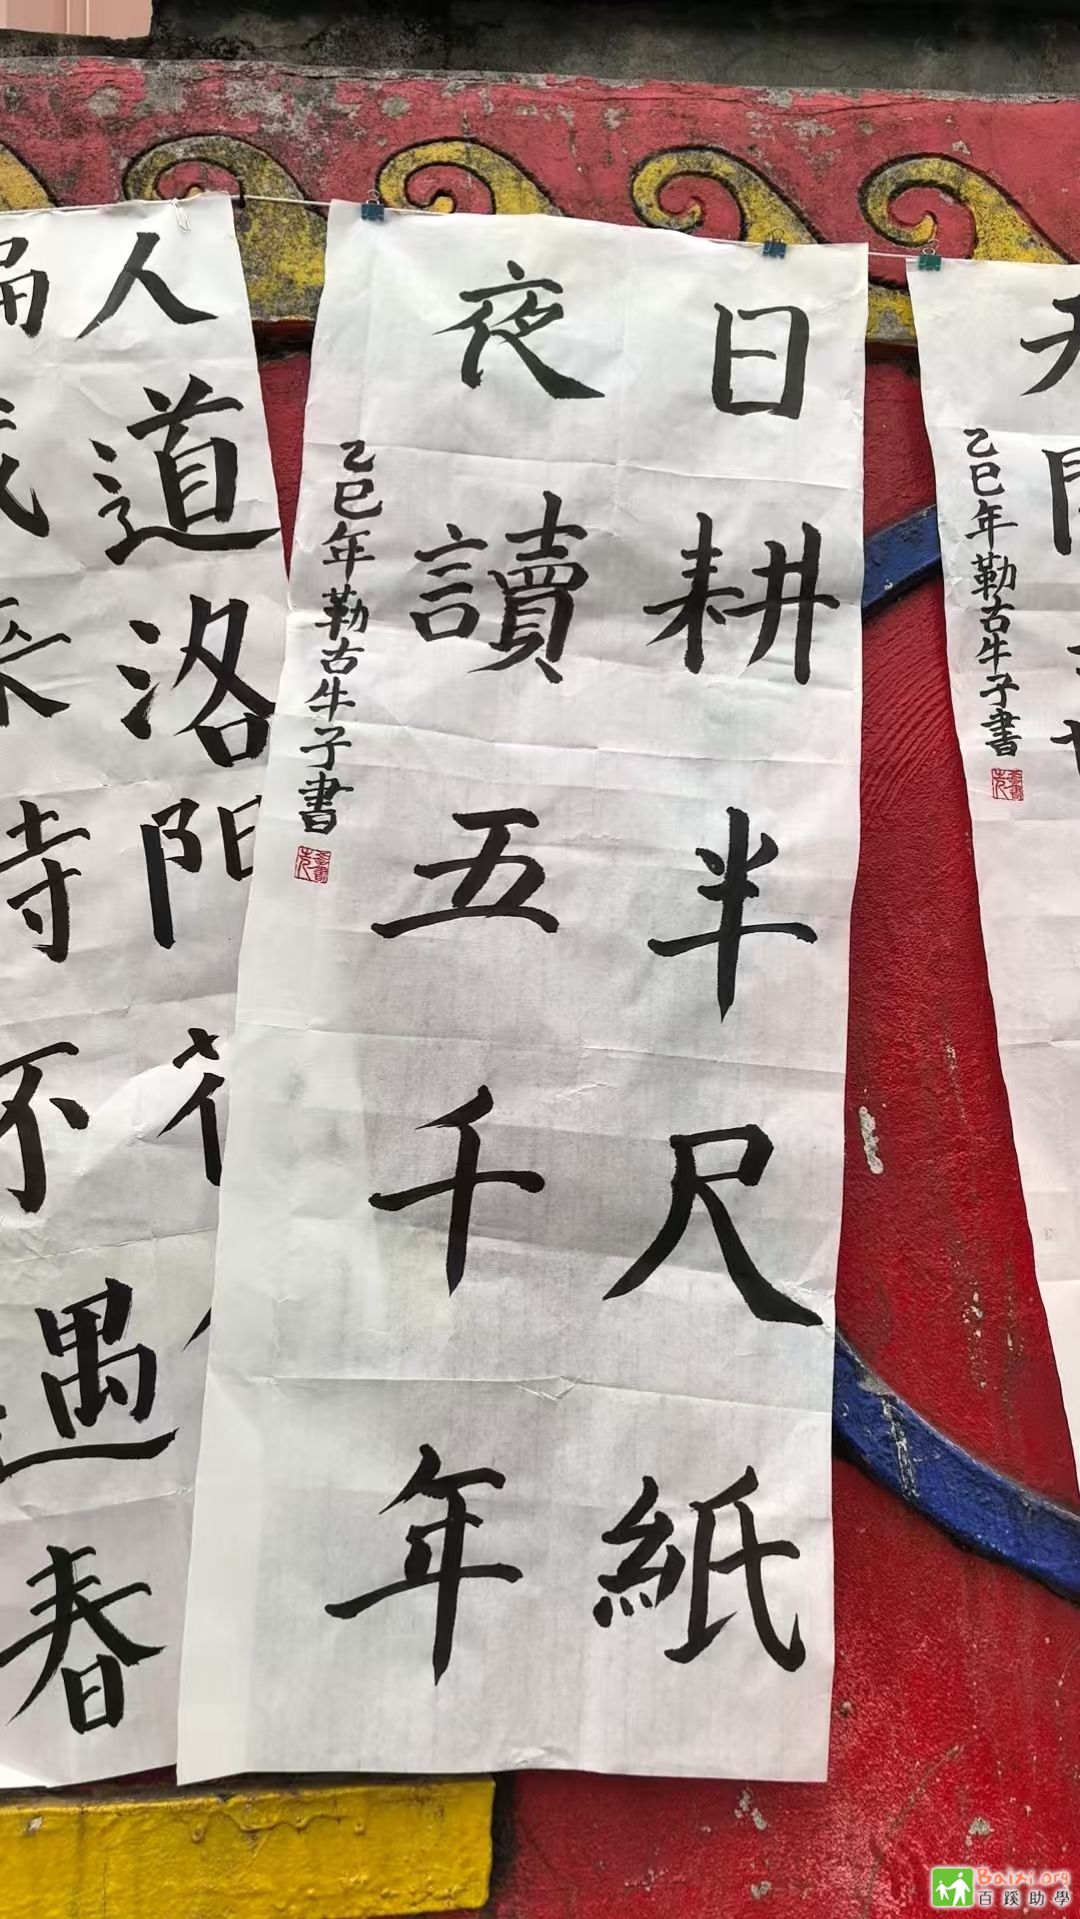 日耕半尺紙
夜讀五千年
乙巳年勒古牛子書
人道洛陽
來時不遇春
乙巳年勒古牛子書
Baixi.org
百蹊助學